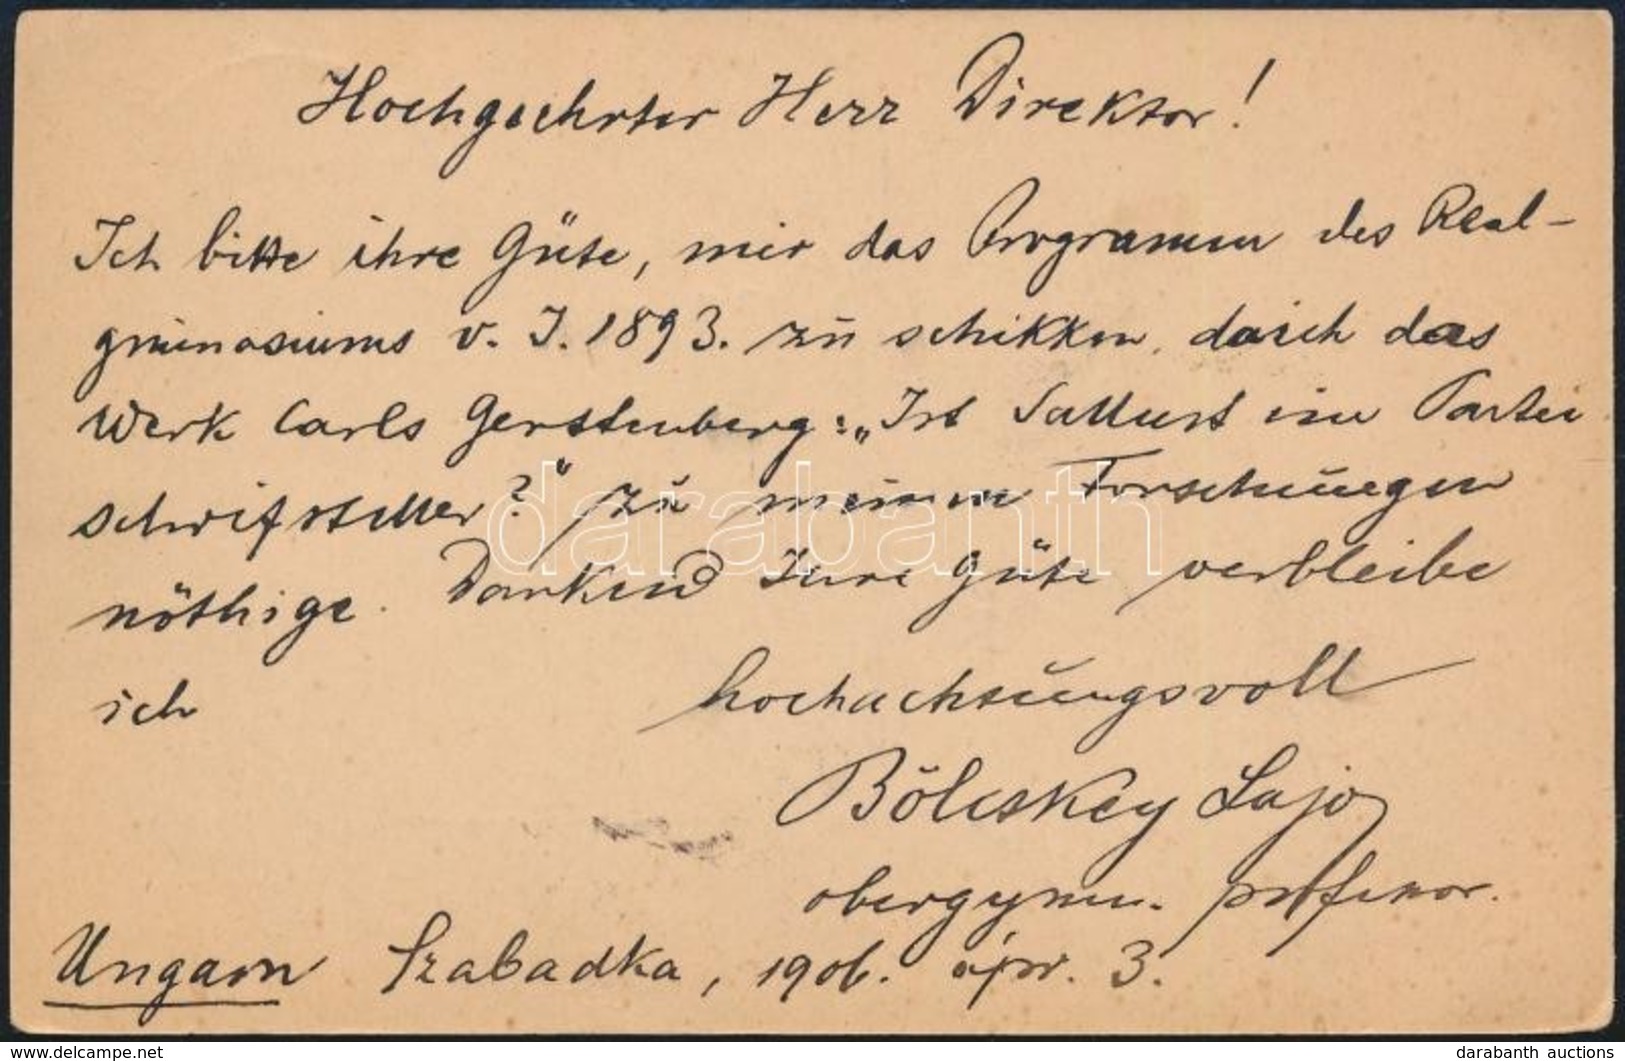 Hochgeehrter Herr Direktor!
Ich bitte ihre Güte, mir das Programm des Real-
gimnasiums v. J. 1893. zu schikken, durch das
Werk Carls Gerstenberg: „Ist Sallust ein Partei
schriftsteller?" zu meinen Forschungen
nöthige. Dankend Ihre Güte verbleibe
ich hochachtungsvoll
Bölcskey Lajos
obergymn. professor.
Ungarn Szabadka, 1906. ápr. 3.
darabanth
darabanth auctions
https://www.delcampe.net